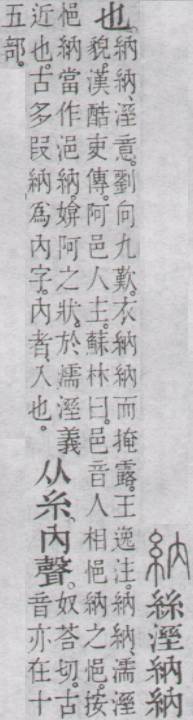 納 絲溼納納
也。
納納、溼意。劉向九歎。衣納納而掩露。王逸注。納納、濡溼
貌。漢酷吏傳。阿邑人主。蘇林曰。邑音人相悒納之悒。按
悒納當作浥納。媕阿之狀。於濡溼義
近也。古多叚納爲內字。內者、入也。
从糸。內聲。
奴荅切。古
音亦在十
五部。